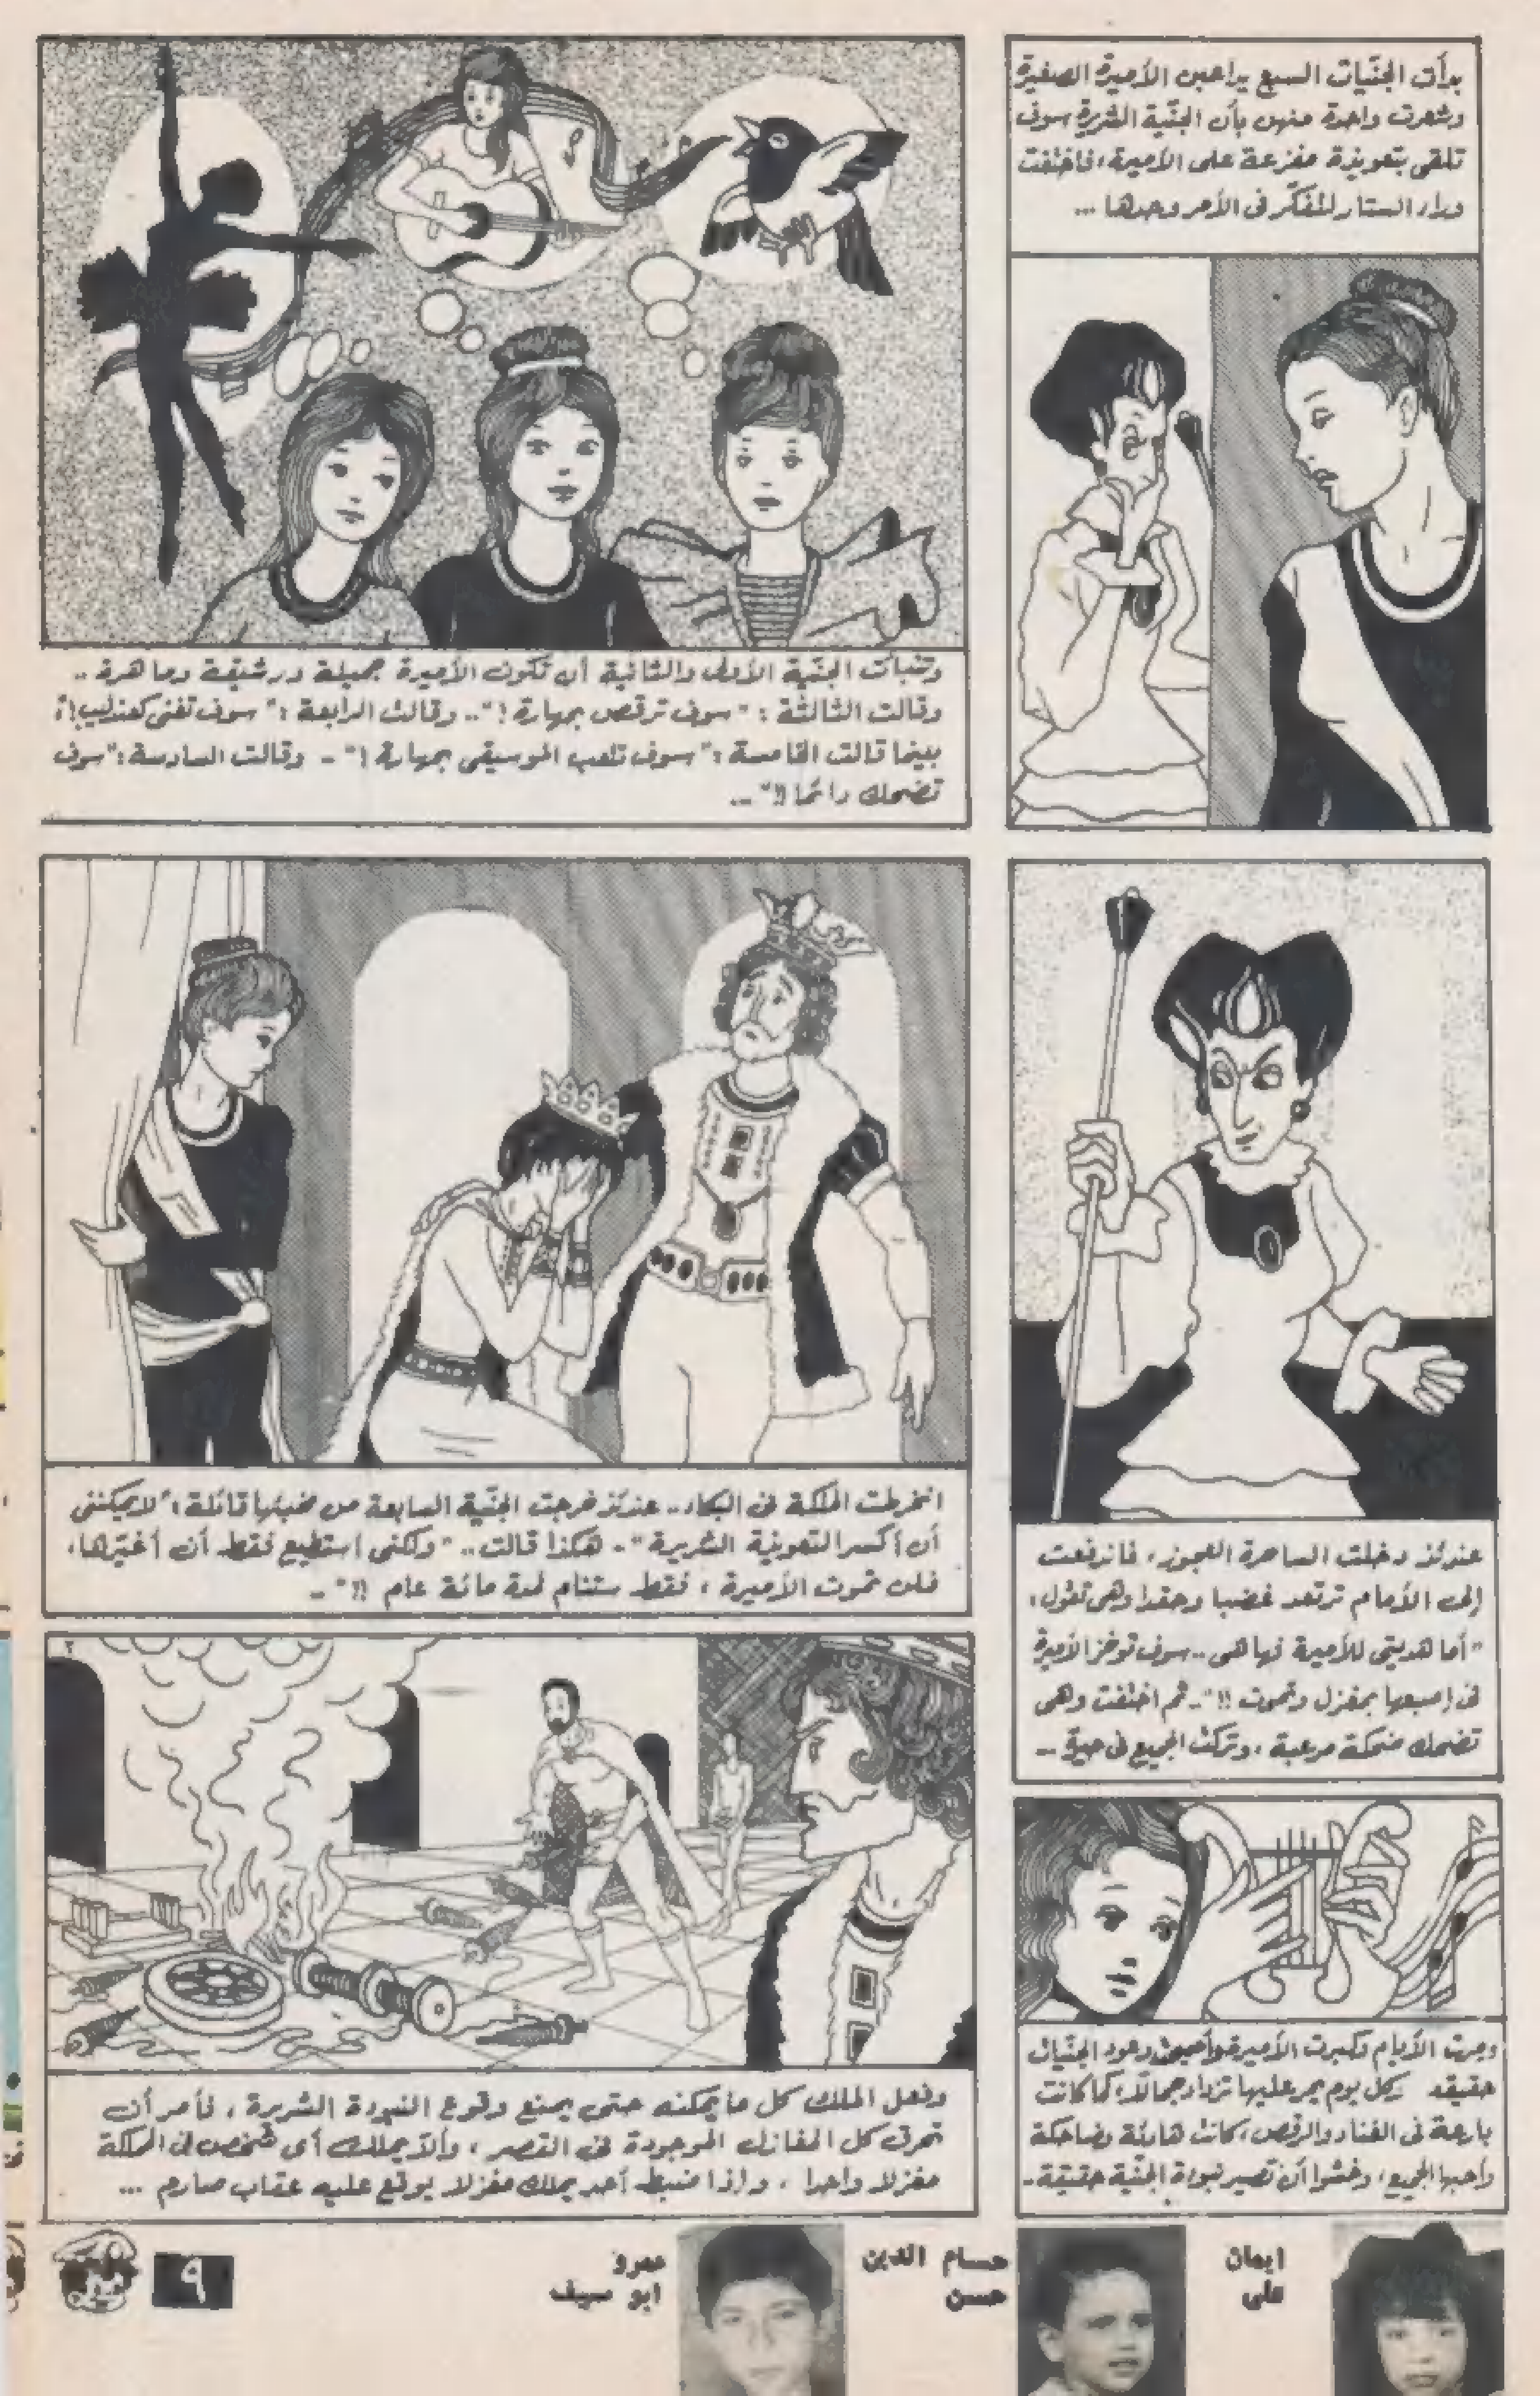 بدأت الجنّيات السبع يداعبن الأميرة الصغيرة
وشعرت واحدة منهن بأن الجنّية الشريرة سوف
تلقى بتعويذة مفزعة على الأميرة، فاختفت
وراء الستار لتفكّر فى الأمر وحدها ...
وتنبأت الجنّية الأولى والثانية أن تكون الأميرة جميلة ورشيقة وماهرة ..
وقالت الثالثة : "سوف ترقص بمهارة !".. وقالت الرابعة : "سوف تغنى كعندليب!"
بينما قالت الخامسة : "سوف تلعب الموسيقى بمهارة !" - وقالت السادسة : "سوف
تضحك دائما !!" ...
عندئذ دخلت الساحرة العجوز، فاندفعت
إلى الأمام ترتعد غضبا وحقدا وهى تقول :
"أما هديتى للأميرة فها هى .. سوف توخز الأميرة
فى إصبعها بمغزل وتموت !!".. ثم اختفت وهى
تضحك ضحكة مرعبة ، وتركت الجميع فى حيرة ..
انخرطت الملكة فى البكاء .. عندئذ خرجت الجنّية السابعة من مخبئها قائلة : "لا يمكننى
أن أكسر التعويذة الشريرة" .. هكذا قالت .. "ولكنى استطيع فقط أن أغيّرها،
فلن تموت الأميرة ، فقط ستنام لمدة مائة عام !!" ..
ومرت الأيام وكبرت الأميرة وأصبحت وعود الجنّيات
حقيقة وكل يوم يمر عليها تزداد جمالاً، كما كانت
بارعة فى الغناء والرقص، كانت هادئة وضاحكة
وأحبها الجميع، وخشوا أن تصير نبوءة الجنّية حقيقة ..
وفعل الملك كل ما يمكنه حتى يمنع وقوع النبوءة الشريرة ، فأمر أن
تحرق كل المغازل الموجودة فى القصر ، وألاّ يملك أى شخص فى المملكة
مغزلا واحدا ، وإذا ضبط أحد يملك مغزلا يوقع عليه عقاب صارم ...
ايمان
على
حسام الدين
حسن
عمرو
ابو سيف
٩